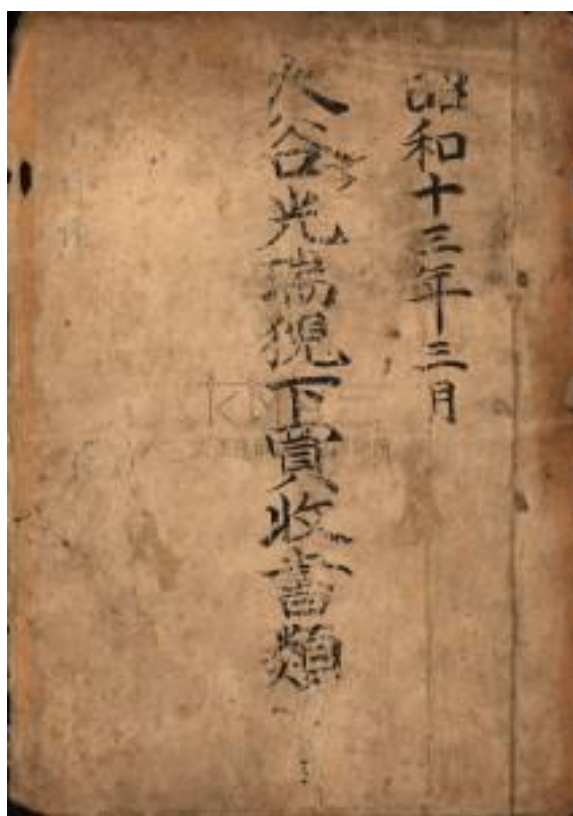 昭和十三年三月
大谷光瑞猊下買收書類